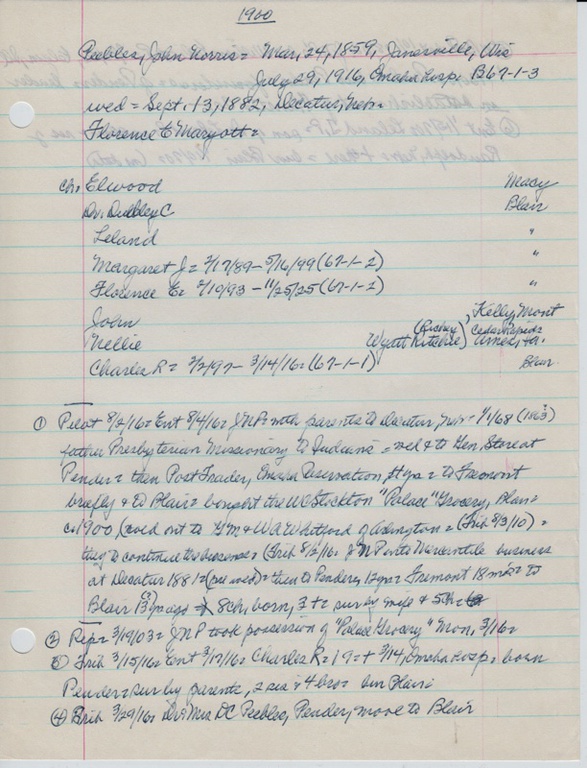 1900
Peebles, John Norris = Mar, 24, 1859, Janesville, Wis
July 29, 1916, Omaha Hosp: B67-1-3
wed = Sept. 13, 1882, Decatur, Neb =
Florence E Maryott =
ch: Elwood Macy
Dr. Dudley C Blair
Leland "
Margaret J = 2/17/89 - 5/16/99 (67-1-2) "
Florence E = 2/10/93 - 11/25/25 (67-1-2) "
John Kelly, Mont
Nellie Wyatt Ritchie (Richey) Cedar Rapids Ames, +a.
Charles R = 2/2/97 - 3/14/16 = (67-1-1) Blair
① Pilot 8/2/16 = Ent 8/4/16 = JNP = with parents to Decatur, Neb = 1/1/68 (1863?)
father Presbyterian Missionary to Indians = wed & to Gen, Store at
Pender = then Post Trader, Omaha Reservation, yrs = to Fremont
briefly & to Blair = bought the WC Stockton "Palace" Grocery, Blair =
c. 1900 (sold out to GM & WA Whitford of Arlington = (Trib 8/3/10) =
they to continue the business = (Trib 8/2/16: JNP into Mercantile business
at Decatur 1881 = (per wed) = then to Pender, 12 yrs = Fremont 18 mos = to
Blair yrs ago 8 ch, born, 3 + = sur by wife & 5 ch =
② Rep = 3/19/03 = JNP took possession of "Palace Grocery" Mon, 3/16 =
③ Trib 3/15/16 = Ent 3/17/16 = Charles R = 19 = + 3/14, Omaha Hosp = born
Pender = sur by parents, 2 sis & 4 bro = bur Blair:
④ Trib 3/29/16 = Dr & Mrs DC Peebles, Pender, move to Blair